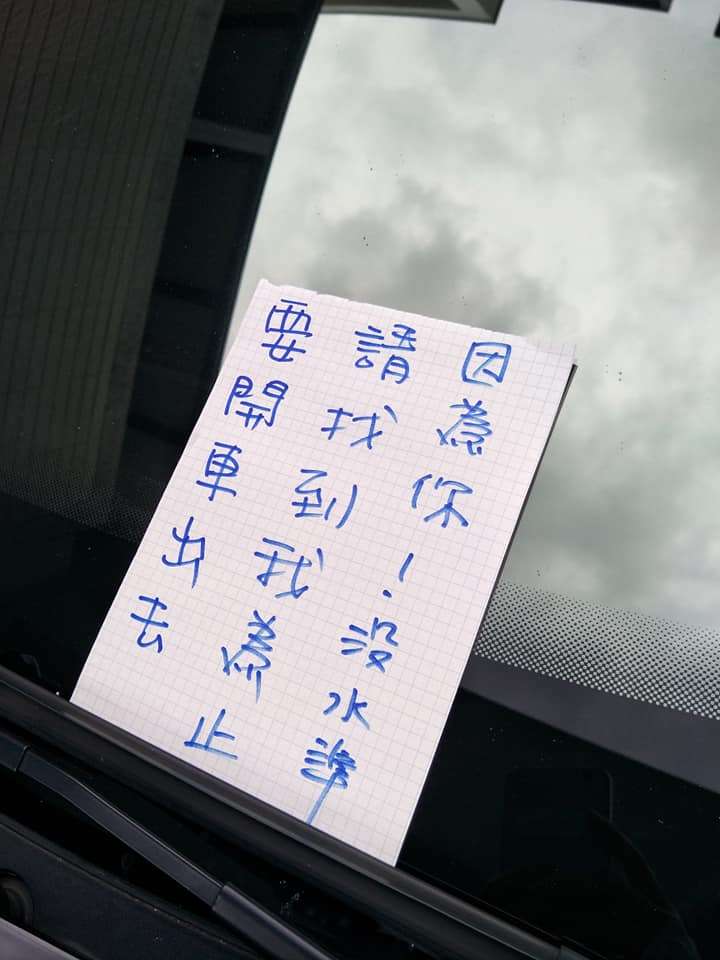 因為你!没水準
請找到我為止
要開車出去